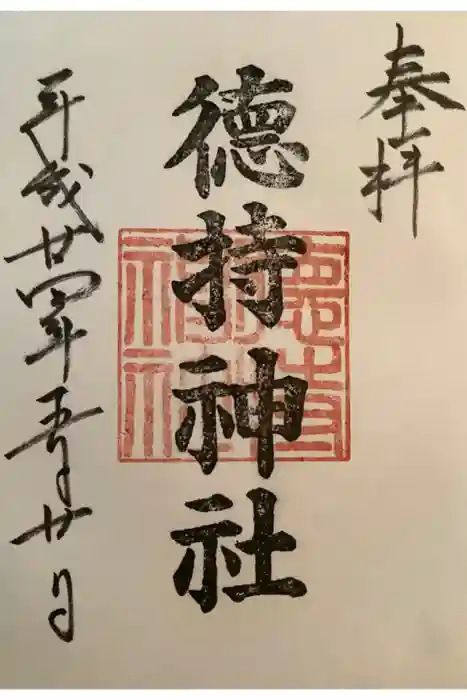 奉拝
德持神社
平成廿四年五月廿日